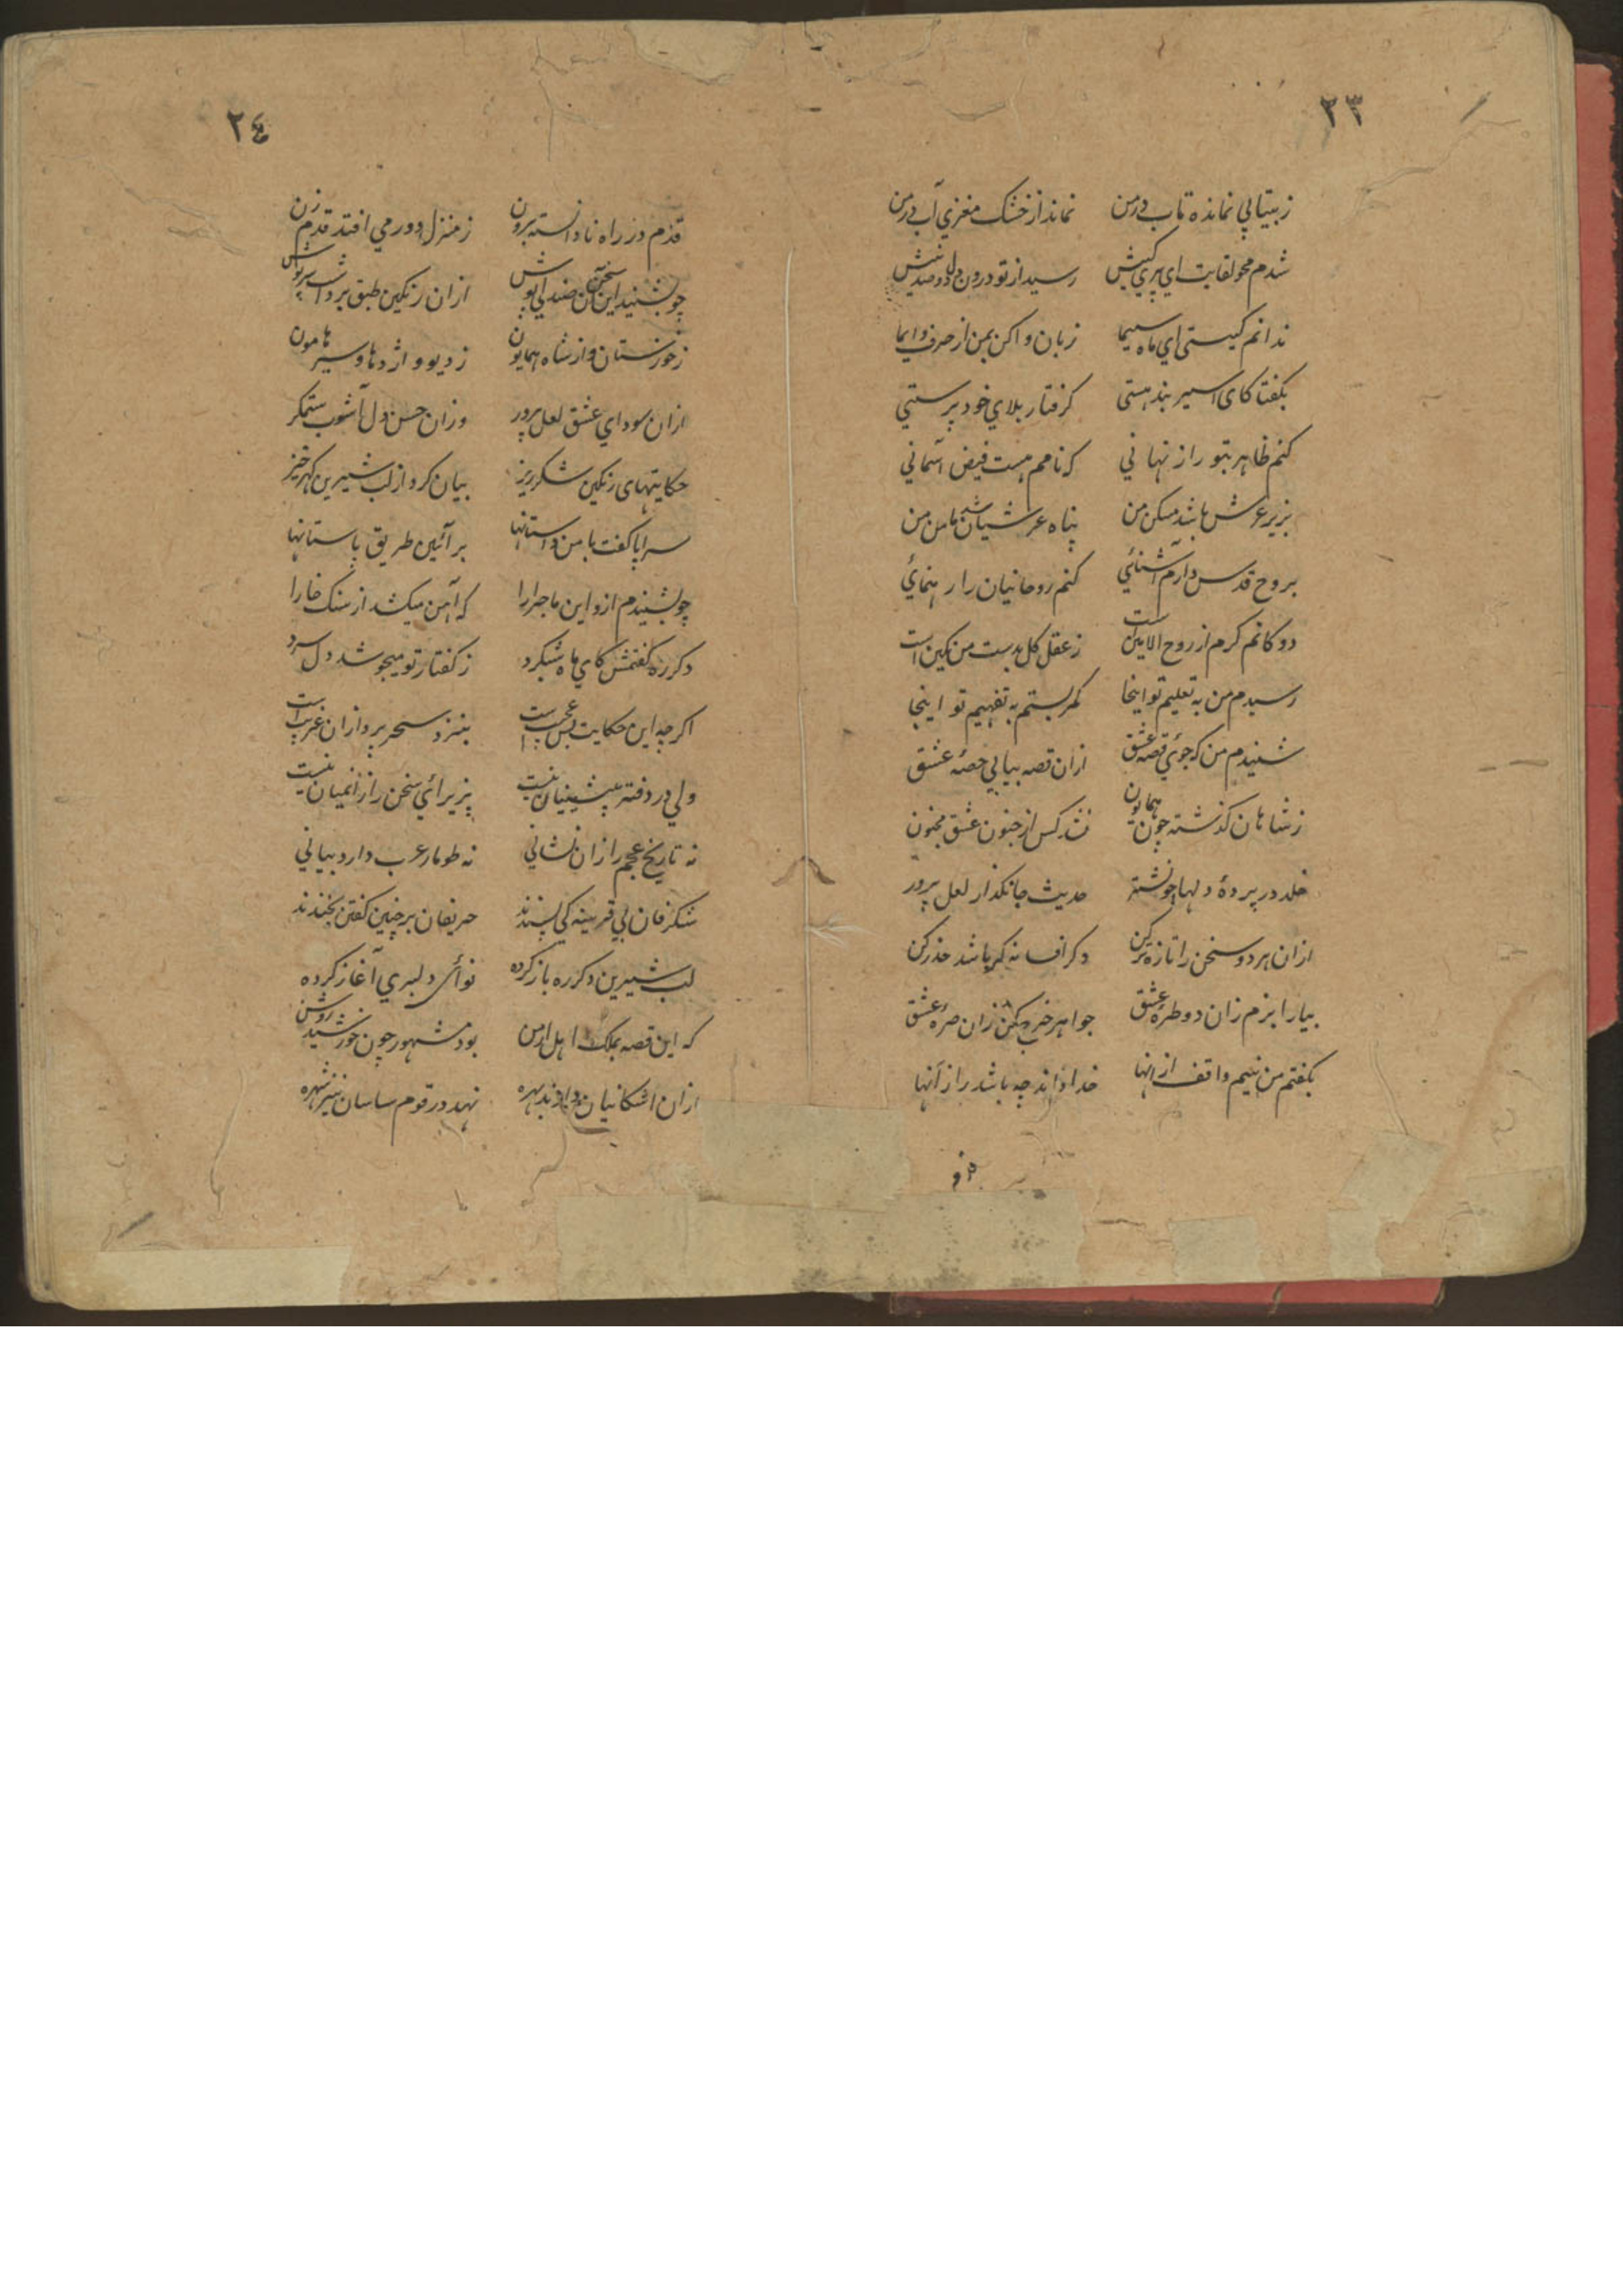 ۲۳
ز بیتابی نمانده تاب در من نماند از خشک مغزی آب در من
شدم محو لقایت ای پری کیش رسید از تو درون دل دو صد نیش
ندانم کیستی ای ماه سیما زبان وا کن بمن از حرف و ایما
بگفتا کای اسیر بند هستی گرفتار بلای خود پرستی
کنم ظاهر بتو راز نهانی که نامم هست فیض آسمانی
بزیر عرش باشد مسکن من پناه عرشیان شد مامن من
بروح قدس دارم آشنائی کنم روحانیان را رهنمائی
دوکانم گرم از روح الامین است ز عقل کل بدست من نگین است
رسیدم من به تعلیم تو اینجا کمر بستم به تفهیم تو اینجا
شنیدم من که جوئی قصه عشق ازان قصه بیابی حصه عشق
ز شاهان گذشته چون همایون نشد کس از جنون عشق مجنون
خلد در پرده دلها چو نشتر حدیث جانگداز لعل پرور
ازان هر دو سخن را تازه تر کن دگر افسانه گر باشد حذر کن
بیارا بزم زان دو طره عشق جواهر خرج کن زان صره عشق
بگفتم من نییم واقف ازانها خدا داند چه باشد راز آنها
قدم
۲٤
قدم در راه نادانسته بیرون زن ز منزل دور می افتد قدم زن
چو بشنید این سخن آن صندلی پوش ازان رنگین طبق برداشت سرپوش
ز خوزستان و از شاه همایون ز دیو و اژدها و سیر هامون
ازان سودای عشق لعل پرور وزان حسن دل آشوب ستمگر
حکایتهای رنگین شکر ریز بیان کرد از لب شیرین گهر خیز
سراپا گفت با من داستانها بر آئین طریق باستانها
چو بشنیدم ازو این ماجرا را که آهن میکشد از سنگ خارا
دگر ره گفتمش کای ماه شبگرد ز گفتار تو میجوشد دل سرد
اگرچه این حکایت بس عجیب است بنزد سحر پردازان غریب است
ولی در دفتر پیشینیان نیست پزیرائی سخن را زانمیان نیست
نه تاریخ عجم را زان نشانی نه طومار عرب دارد بیانی
شگرفان بی قرینه کی پسندند حریفان بر چنین گفتن بخندند
لب شیرین دگر ره باز کرده نوای دلبری آغاز کرده
که این قصه بملک اهل ارمن بود مشهور چون خورشید روشن
ازان اشکانیان دارند بهره نهد در قوم ساسان نیز شهره